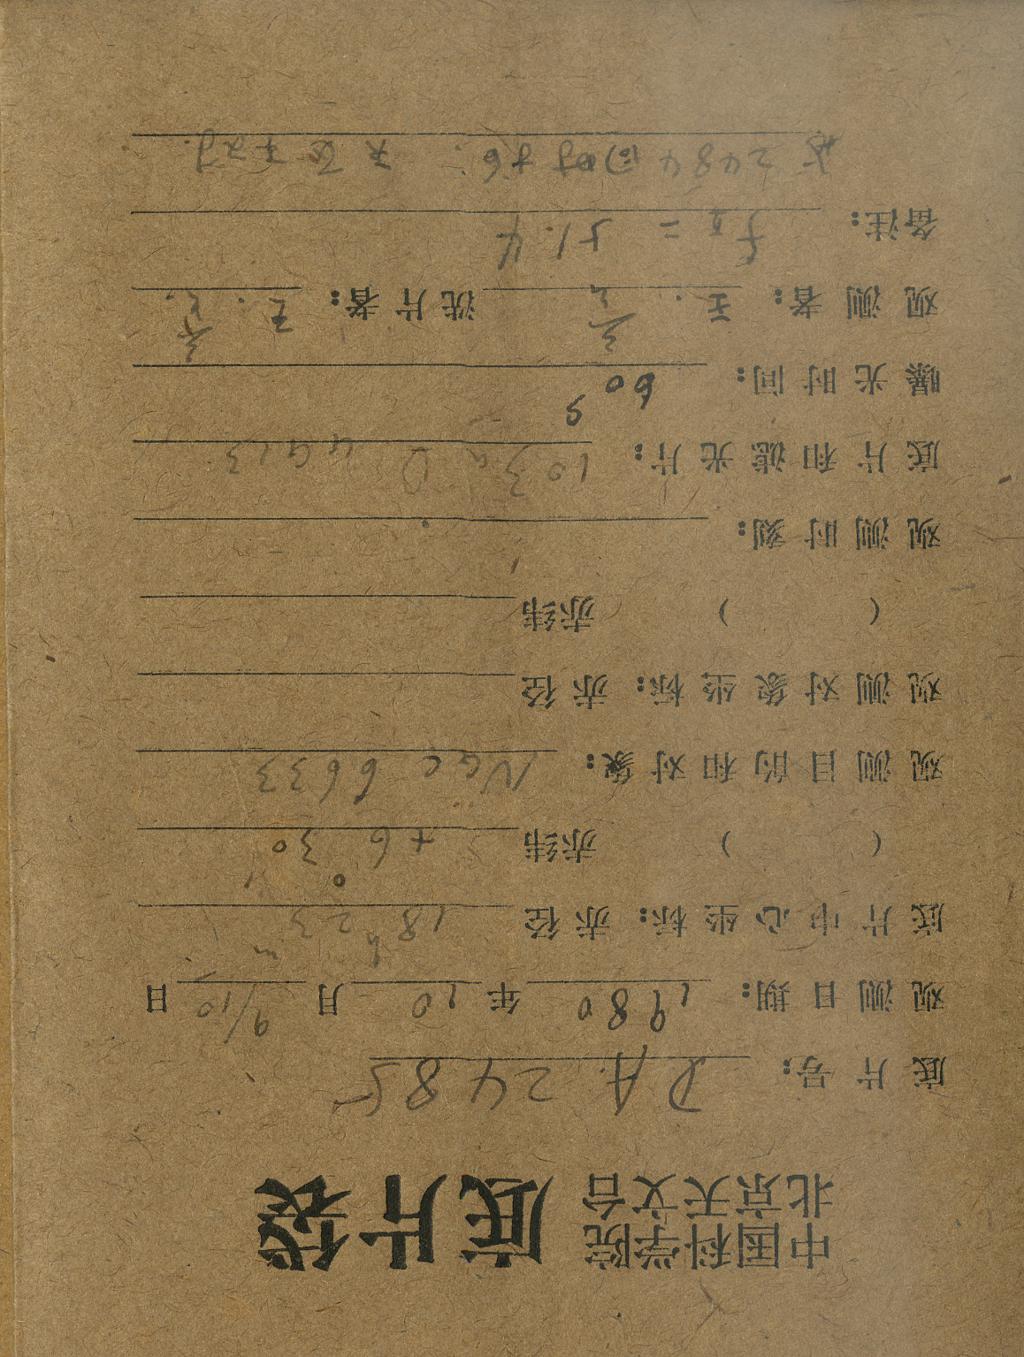 中国科学院
北京天文台 底片袋
底片号: DA 2485
观测日期: 1980 年 10 月 9/10 日
底片中心坐标: 赤径 18h 23m
( ) 赤纬 +6° 30′
观测目的和对象: NGC 6633
观测对象坐标: 赤径
( ) 赤纬
观测时刻:
底片和滤光片: 103aD GG13
曝光时间: 60s
观测者: 王 洗片者: 王
备注: = 51.4
2484同时